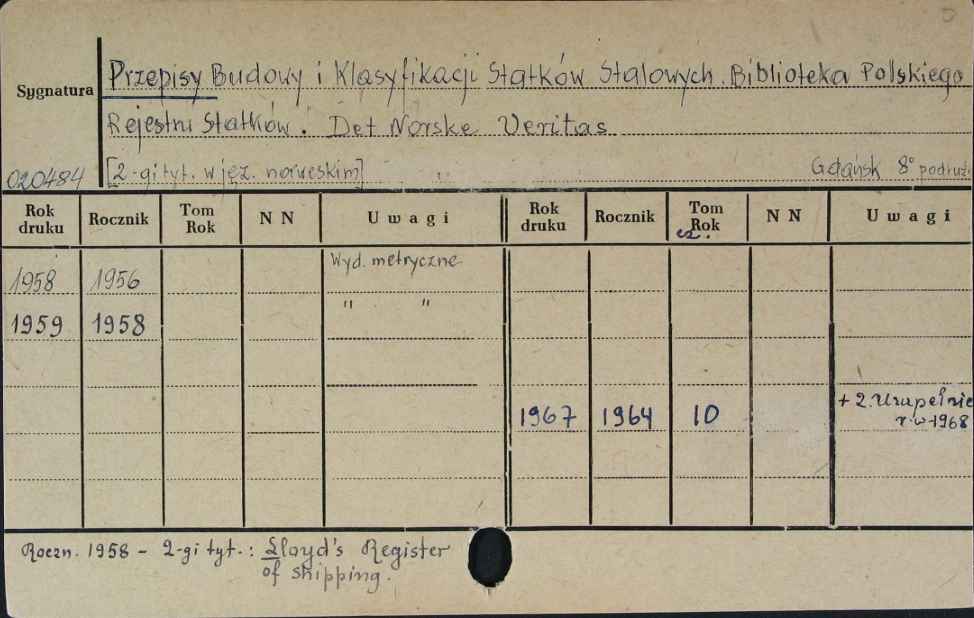 Przepisy Budowy i Klasyfikacji Statków Stalowych. Biblioteka Polskiego
Sygnatura
Rejestru Statków. Det Norske Veritas
020484 [2-gi tyt. w jęz. norweskim] Gdańsk 8° podłużn
Rok druku Rocznik Tom Rok N N Uwagi Rok druku Rocznik Tom Rok cz. N N Uwagi
Wyd. metryczne
1958 1956
" "
1959 1958
+ 2. Uzupełnie
1967 1964 10
r. w 1968
Roczn. 1958 - 2-gi tyt.: Lloyd's Register
of shipping.